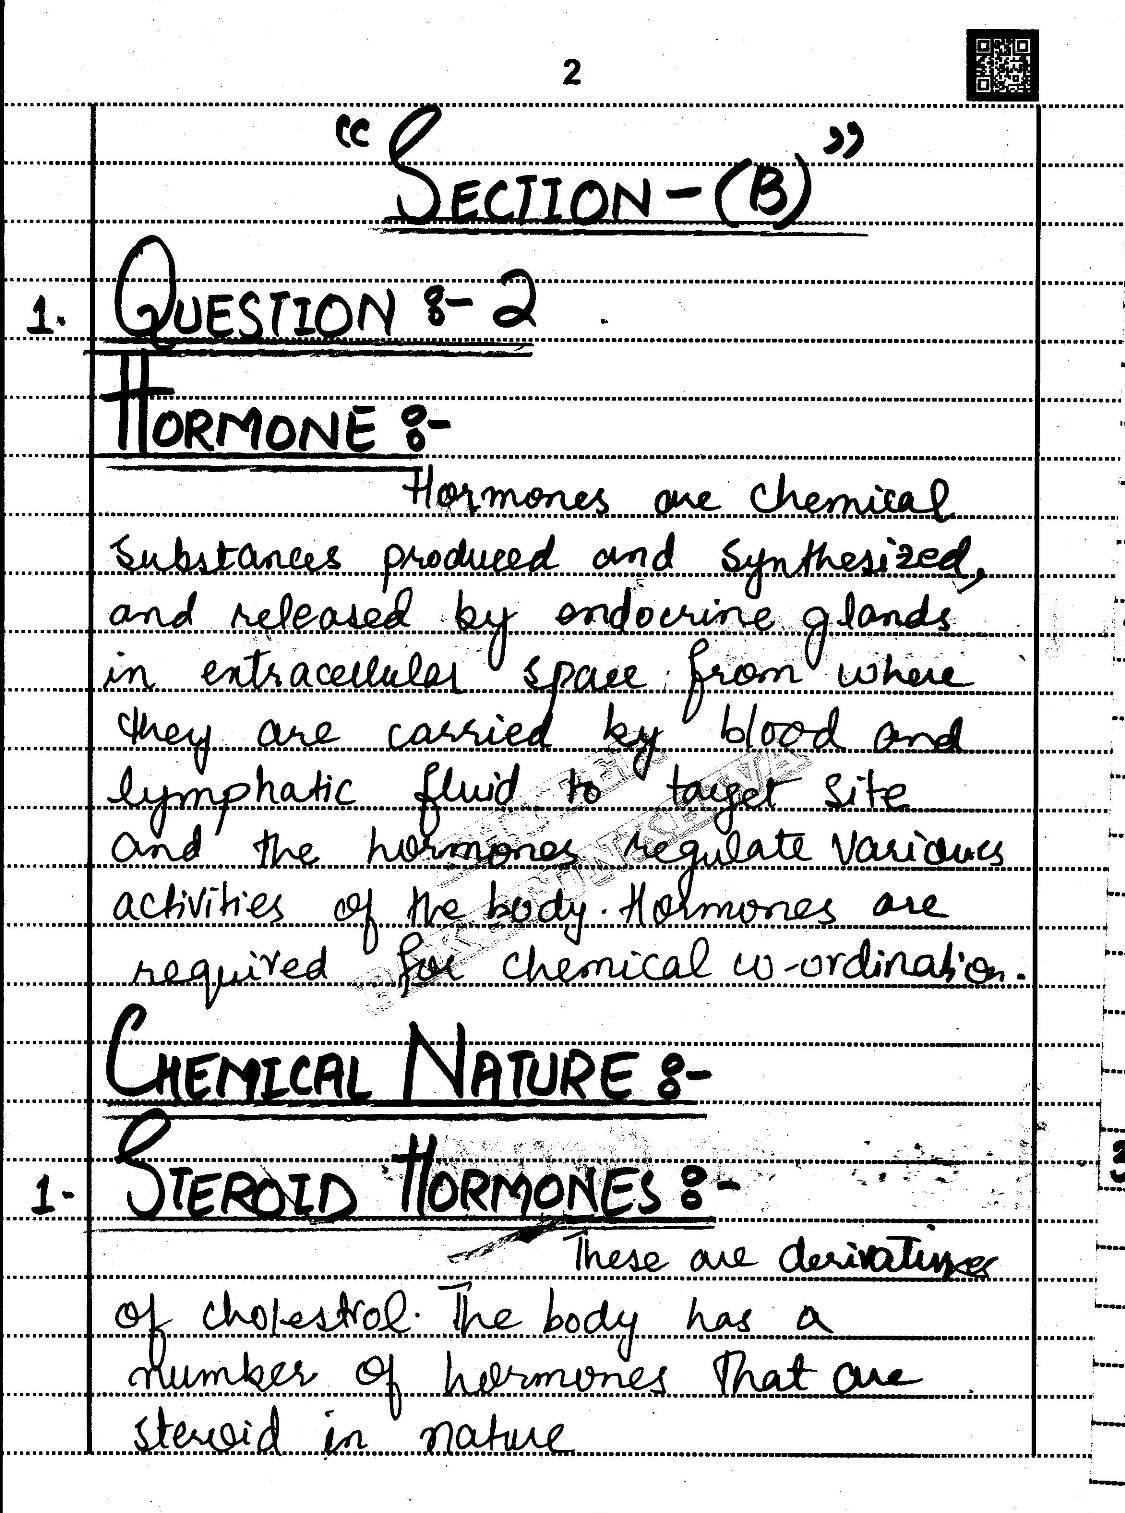 2
"SECTION-(B)"
1. QUESTION :- 2
HORMONE :-
Hormones are chemical
substances produced and synthesized,
and released by endocrine glands
in extracellular space from where
they are carried by blood and
lymphatic fluid to target site
and the hormones regulate various
activities of the body. Hormones are
required for chemical co-ordination.
CHEMICAL NATURE :-
1- STEROID HORMONES :-
These are derivatives
of cholestrol. The body has a
number of hormones that are
steroid in nature